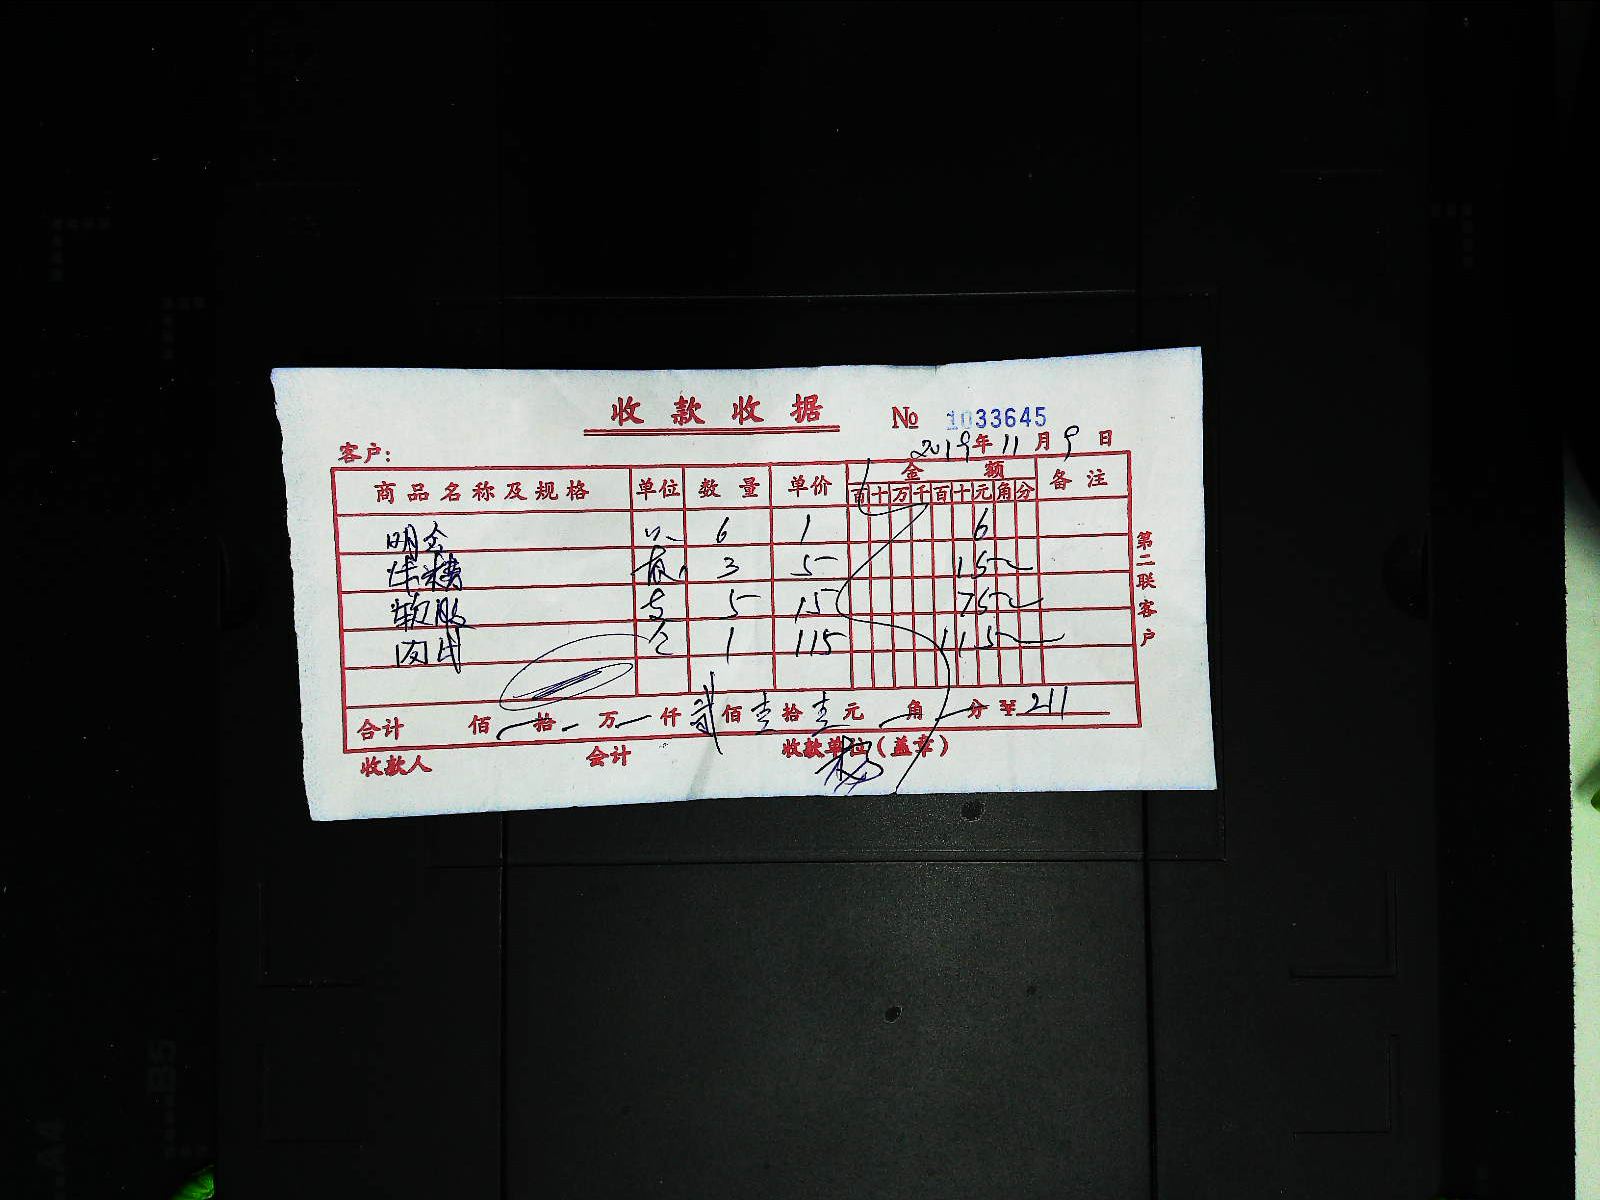 收款收据 № 1033645
客户: 2019年11月9日
商品名称及规格 单位 数量 单价 金额 备注
百十万千百十元角分
明 6 1 6
3 5 15
软胶 支 5 15 75
1 115 115
合计 佰 拾 万 仟 贰佰壹拾壹元 角 分 ¥211
收款人 会计 收款单位(盖章)
杨
第二联客户
A4
B5